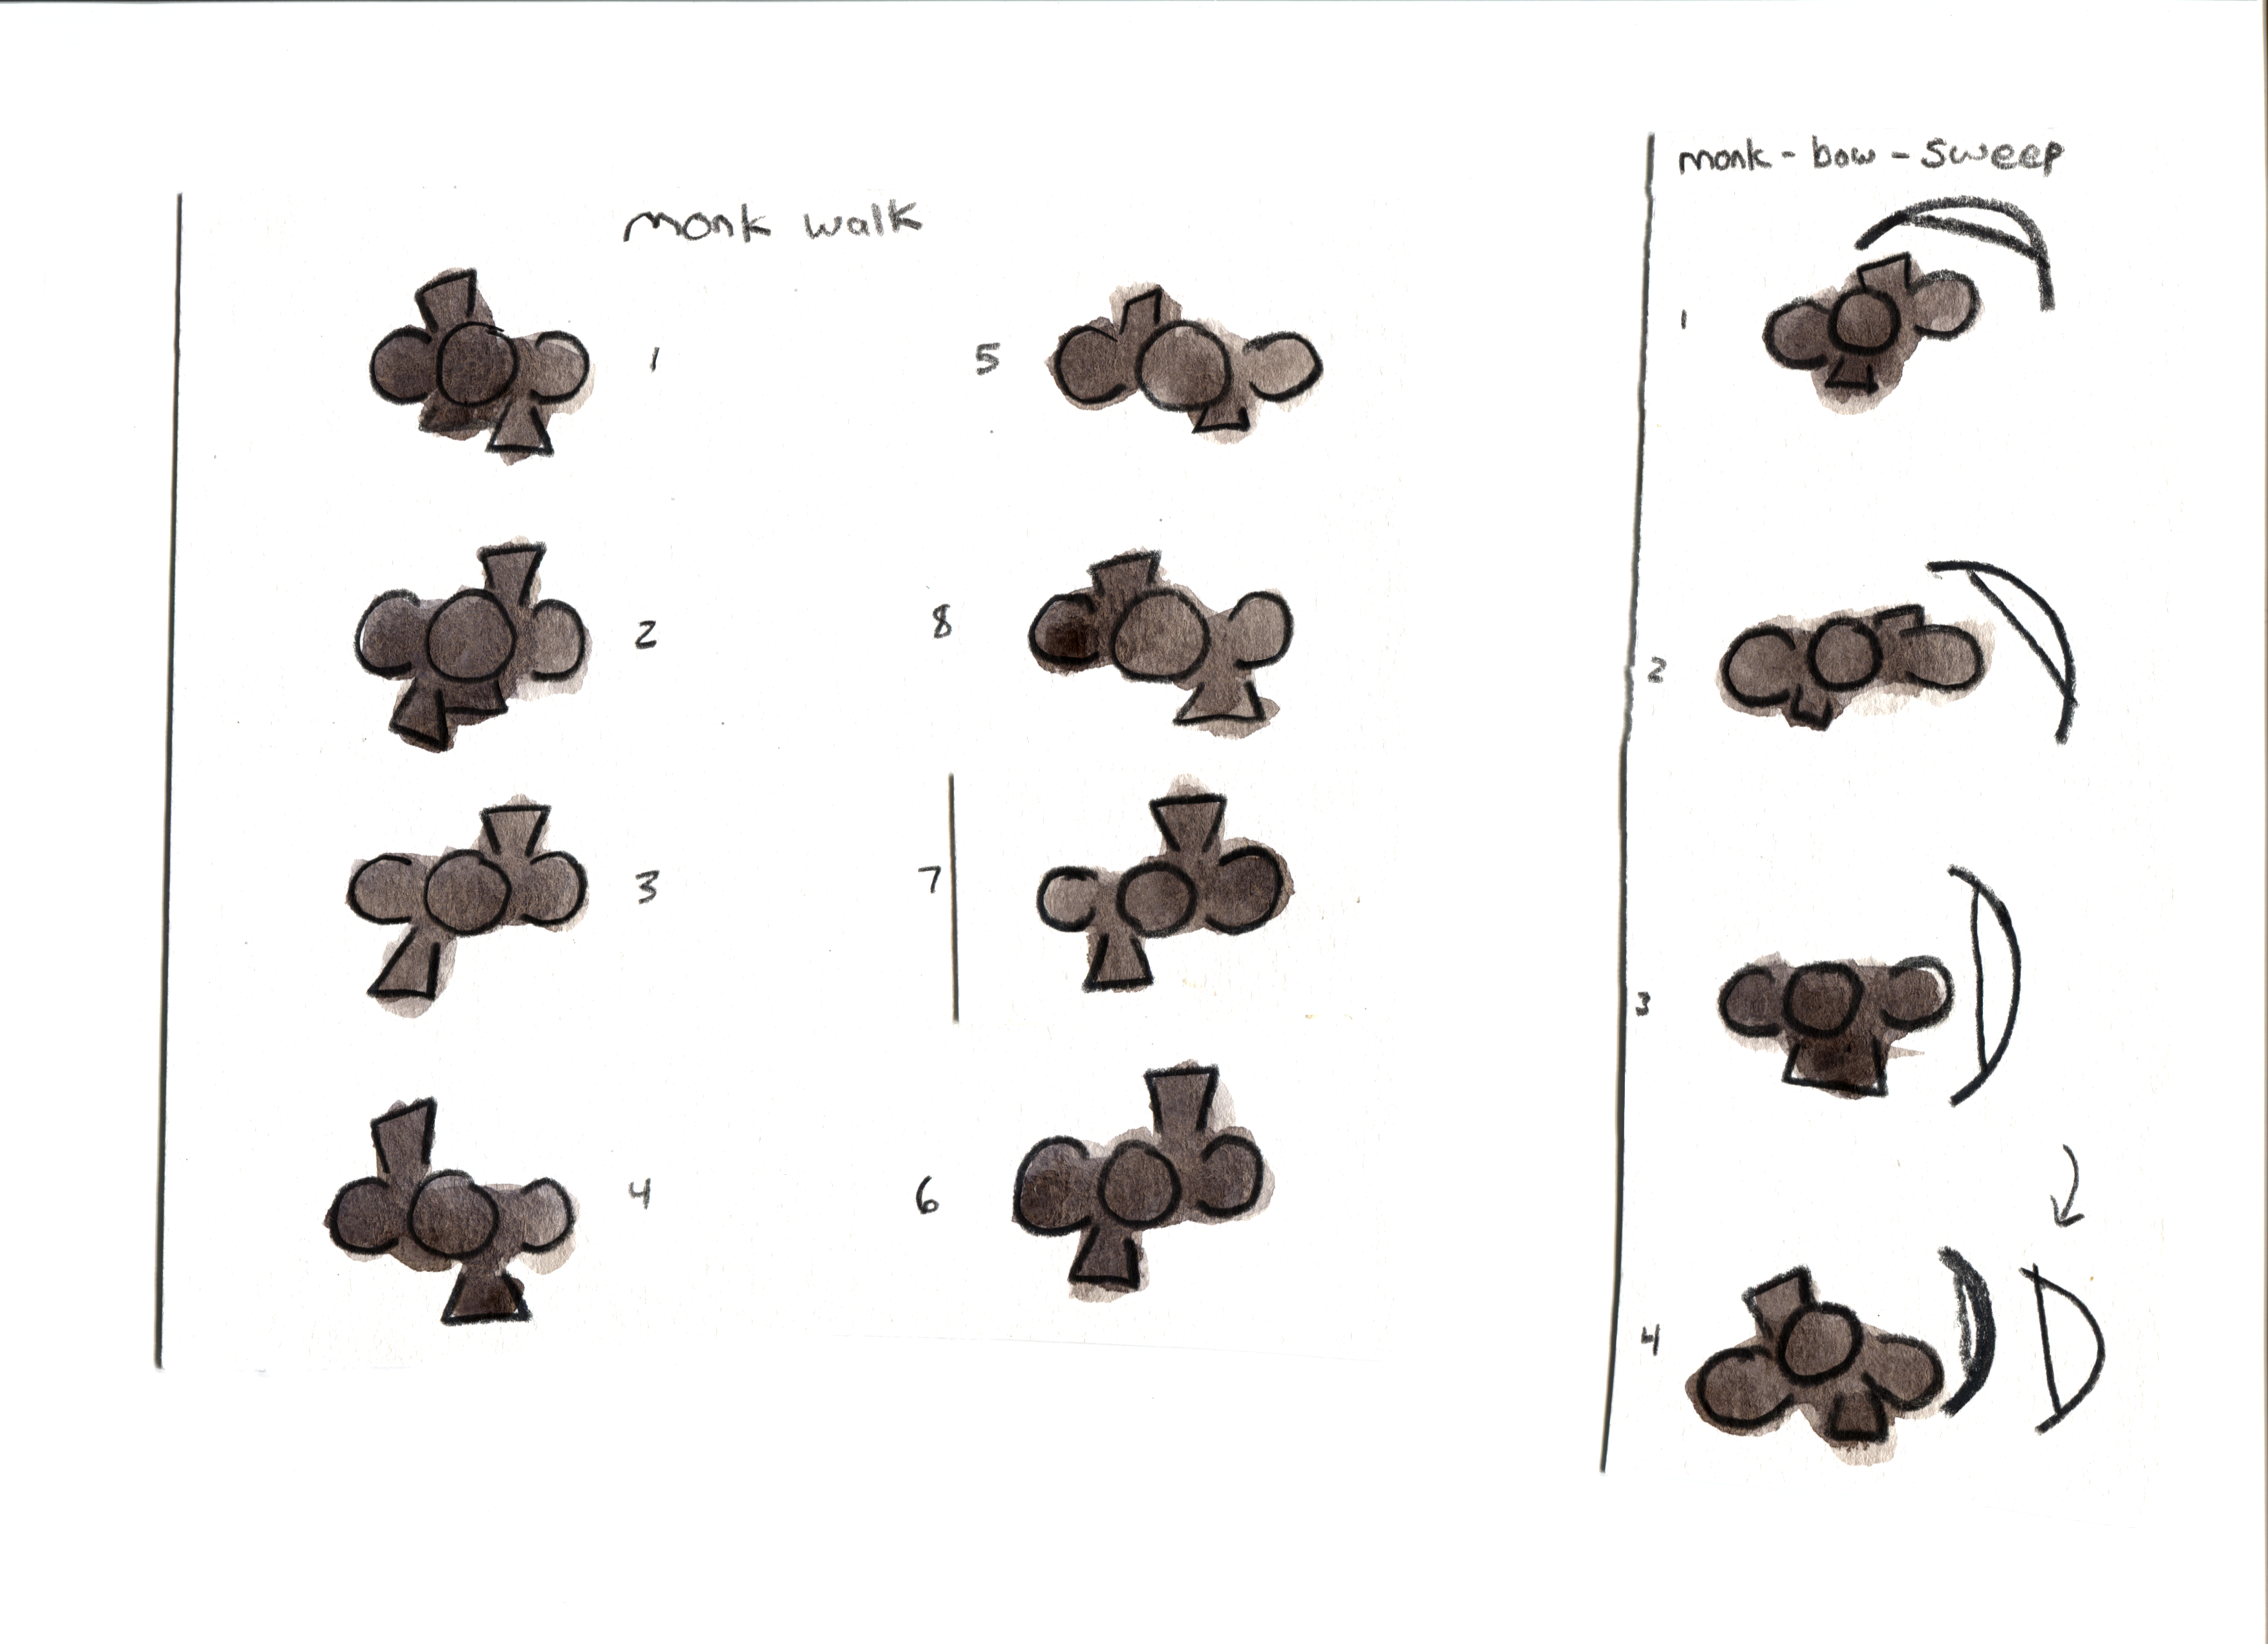 monk walk
1
2
3
4
5
8
7
6
monk - bow - sweep
1
2
3
4